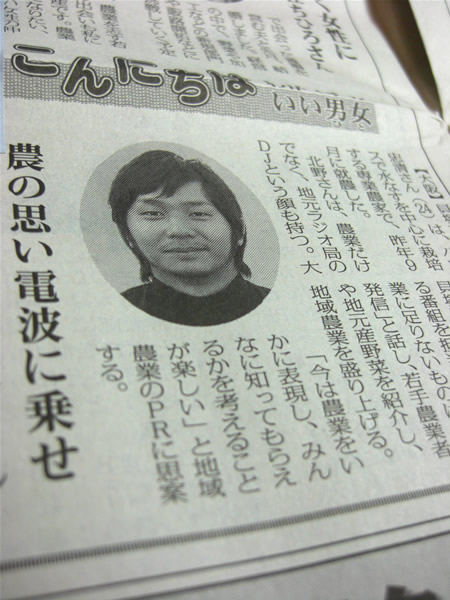 く女性に
こんにちは
いい男女
農の思い電波に乗せ
【大阪】
さん(24)は、ハ
スで水なすを中心に栽培
する専業農家で、昨年9
月に就農した。
北野さんは、農業だけ
でなく、地元ラジオ局の
DJという顔も持つ。大
る番組を担
業に足りないものは
発信」と話し、若手農業者
や地元産野菜を紹介し、
地域農業を盛り上げる。
「今は農業をい
かに表現し、みん
なに知ってもらえ
るかを考えること
が楽しい」と地域
農業のPRに思案
する。